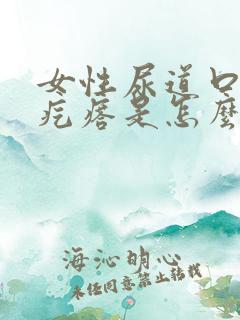 女性尿道口
疙瘩是怎麼
海沁明心
未经同意禁止转载